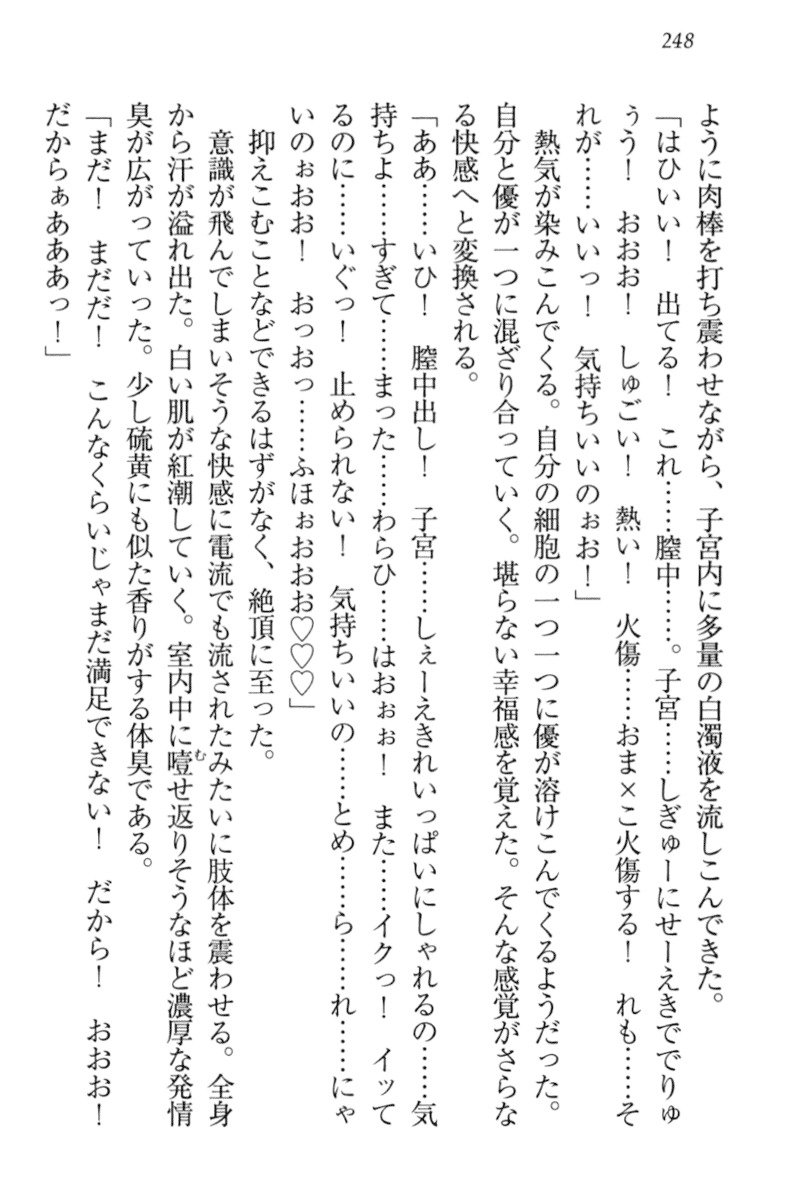 248
ように肉棒を打ち震わせながら、子宮内に多量の白濁液を流しこんできた。
「はひいい！　出てる！　これ……膣中……。子宮……しぎゅーにせーえきででりゅ
ぅう！　おおお！　しゅごい！　熱い！　火傷……おま×こ火傷する！　れも……そ
れが……いいっ！　気持ちいいのぉお！」
　熱気が染みこんでくる。自分の細胞の一つ一つに優が溶けこんでくるようだった。
自分と優が一つに混ざり合っていく。堪らない幸福感を覚えた。そんな感覚がさらな
る快感へと変換される。
「ああ……いひ！　膣中出し！　子宮……しぇーえきれいっぱいにしゃれるの……気
持ちよ……すぎて……まった……わらひ……はおぉぉ！　また……イクっ！　イッて
るのに……いぐっ！　止められない！　気持ちいいの……とめ……ら……れ……にゃ
いのぉおお！　おっおっ……ふほぉおおお♡♡♡」
　抑えこむことなどできるはずがなく、絶頂に至った。
　意識が飛んでしまいそうな快感に電流でも流されたみたいに肢体を震わせる。全身
から汗が溢れ出た。白い肌が紅潮していく。室内中に噎むせ返りそうなほど濃厚な発情
臭が広がっていった。少し硫黄にも似た香りがする体臭である。
「まだ！　まだだ！　こんなくらいじゃまだ満足できない！　だから！　おおお！
だからぁあああっ！」